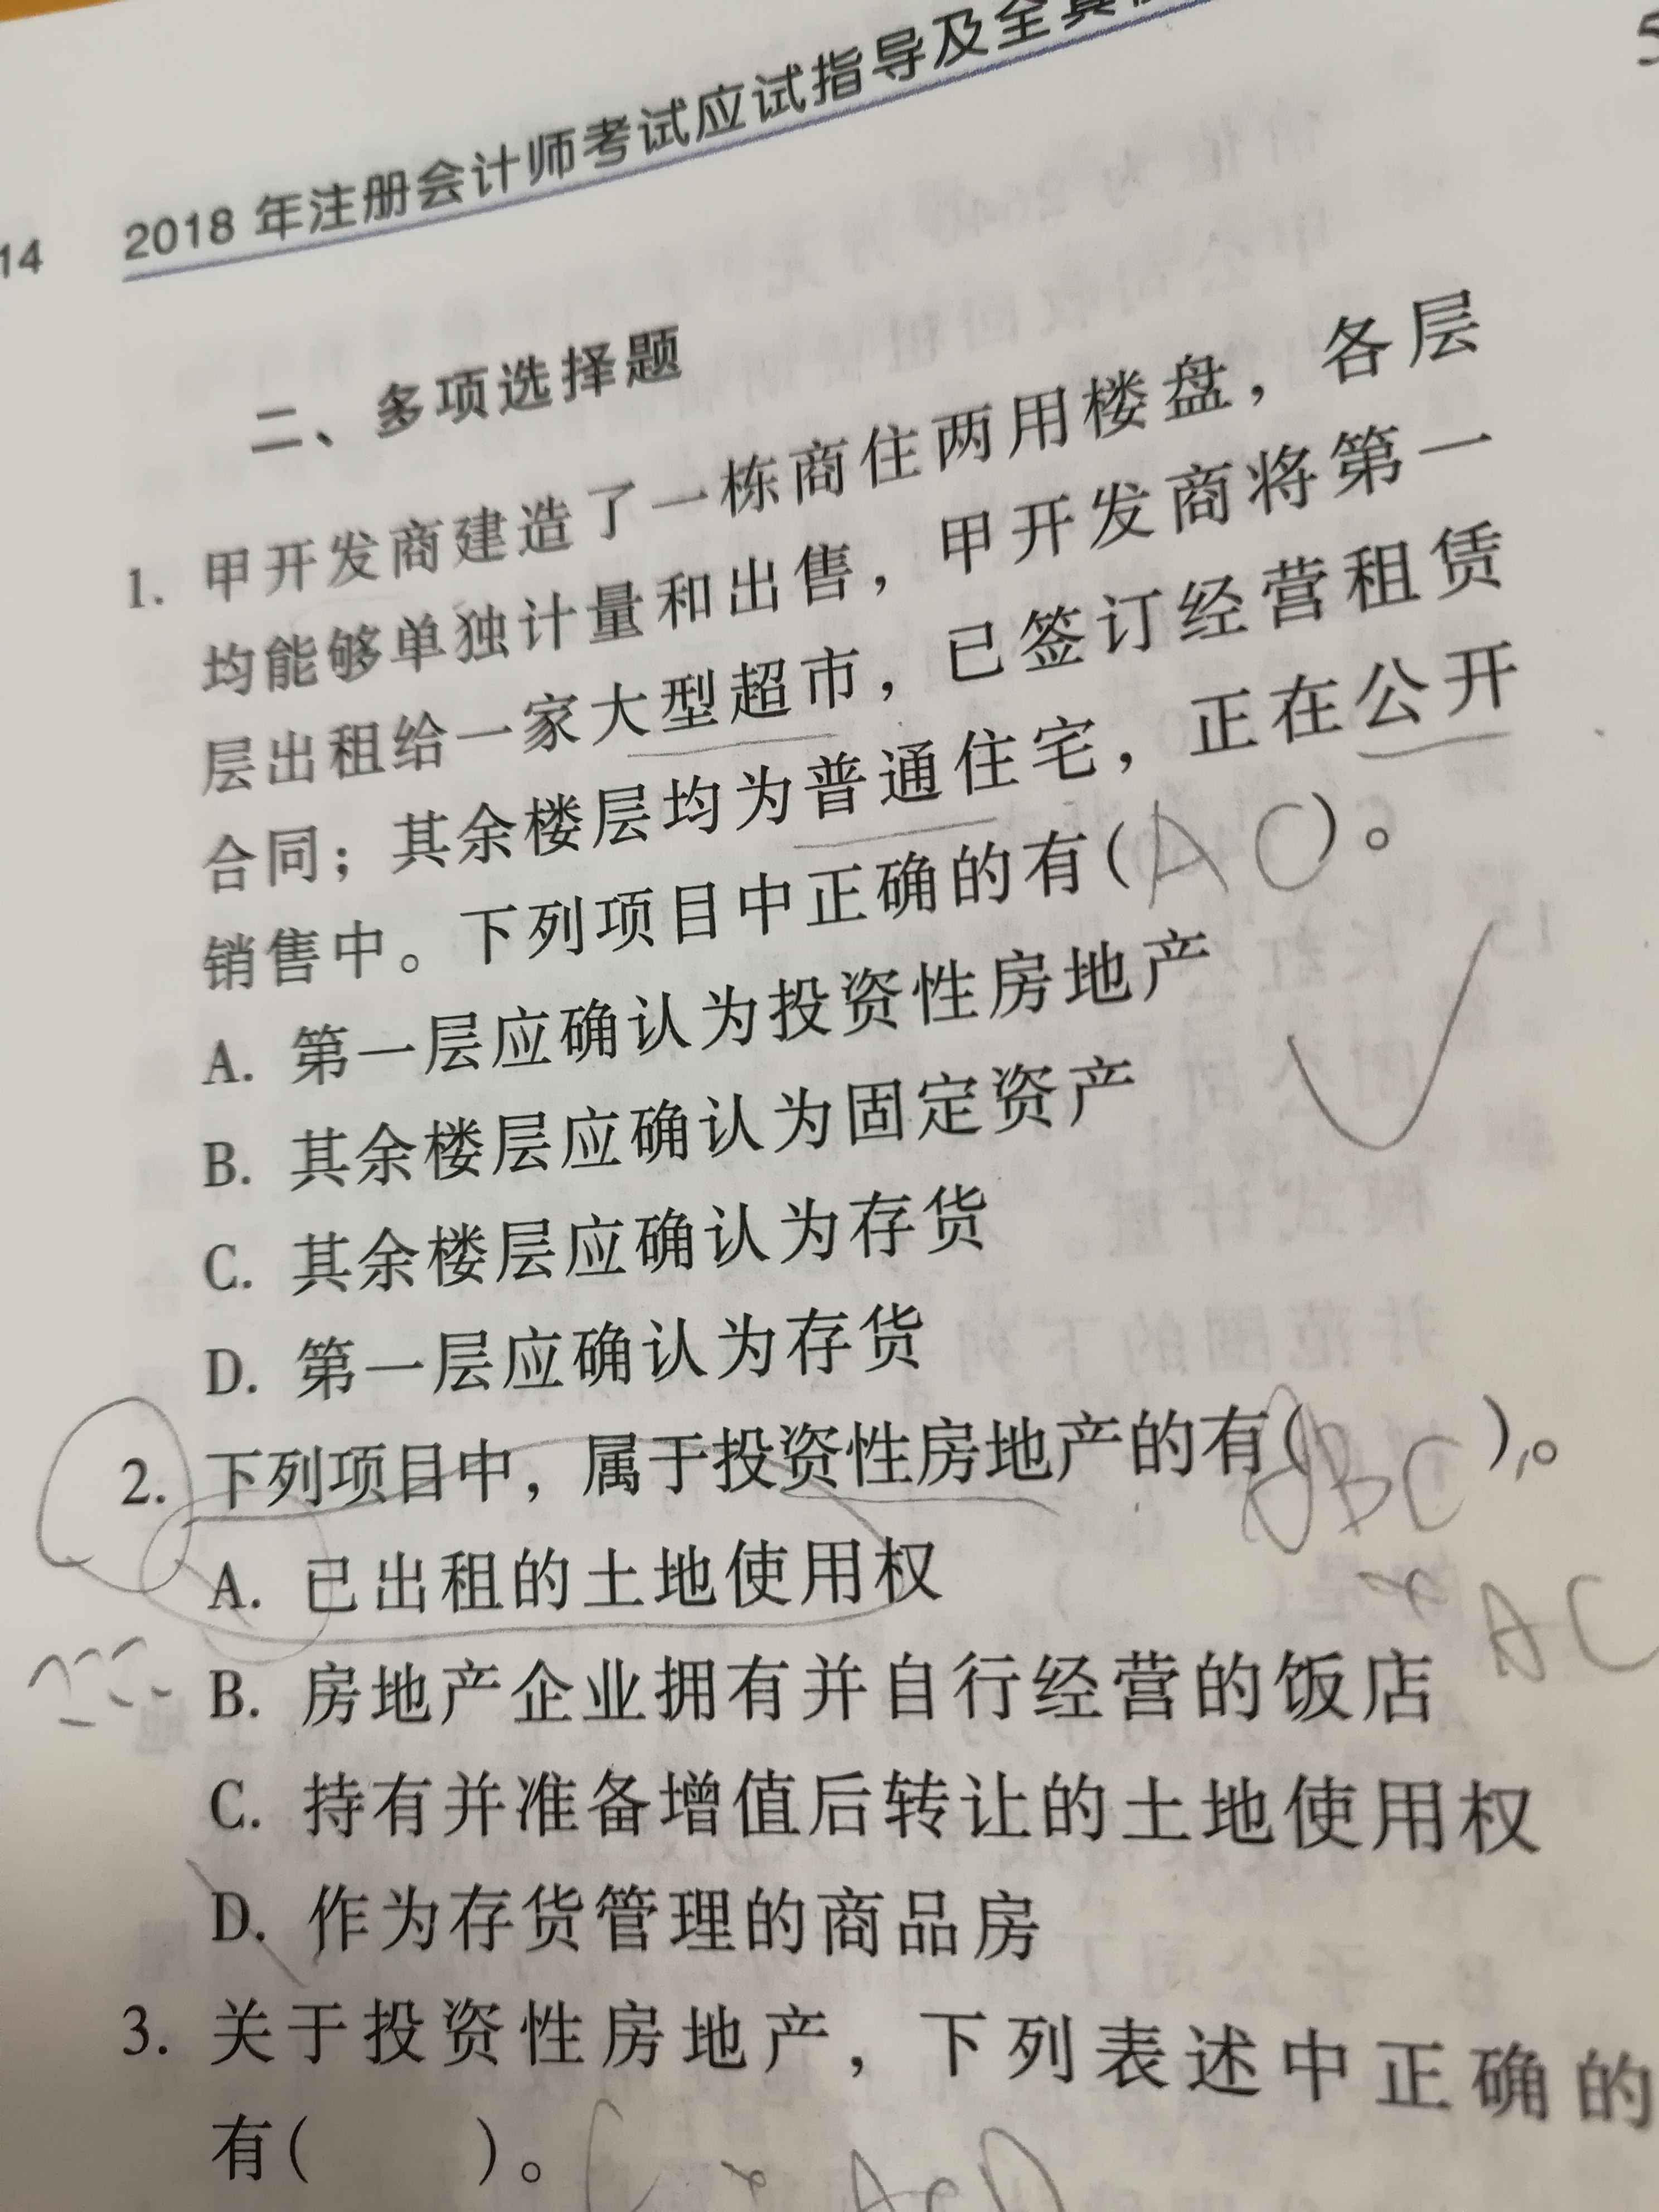 14
2018 年注册会计师考试应试指导及全真
5
二、多项选择题
1. 甲开发商建造了一栋商住两用楼盘，各层
均能够单独计量和出售，甲开发商将第一
层出租给一家大型超市，已签订经营租赁
合同；其余楼层均为普通住宅，正在公开
销售中。下列项目中正确的有(AC)。
A. 第一层应确认为投资性房地产
B. 其余楼层应确认为固定资产
C. 其余楼层应确认为存货
D. 第一层应确认为存货
2. 下列项目中，属于投资性房地产的有(BC)。
A. 已出租的土地使用权
AC
B. 房地产企业拥有并自行经营的饭店
C. 持有并准备增值后转让的土地使用权
D. 作为存货管理的商品房
3. 关于投资性房地产，下列表述中正确的
有(  )。
ACD